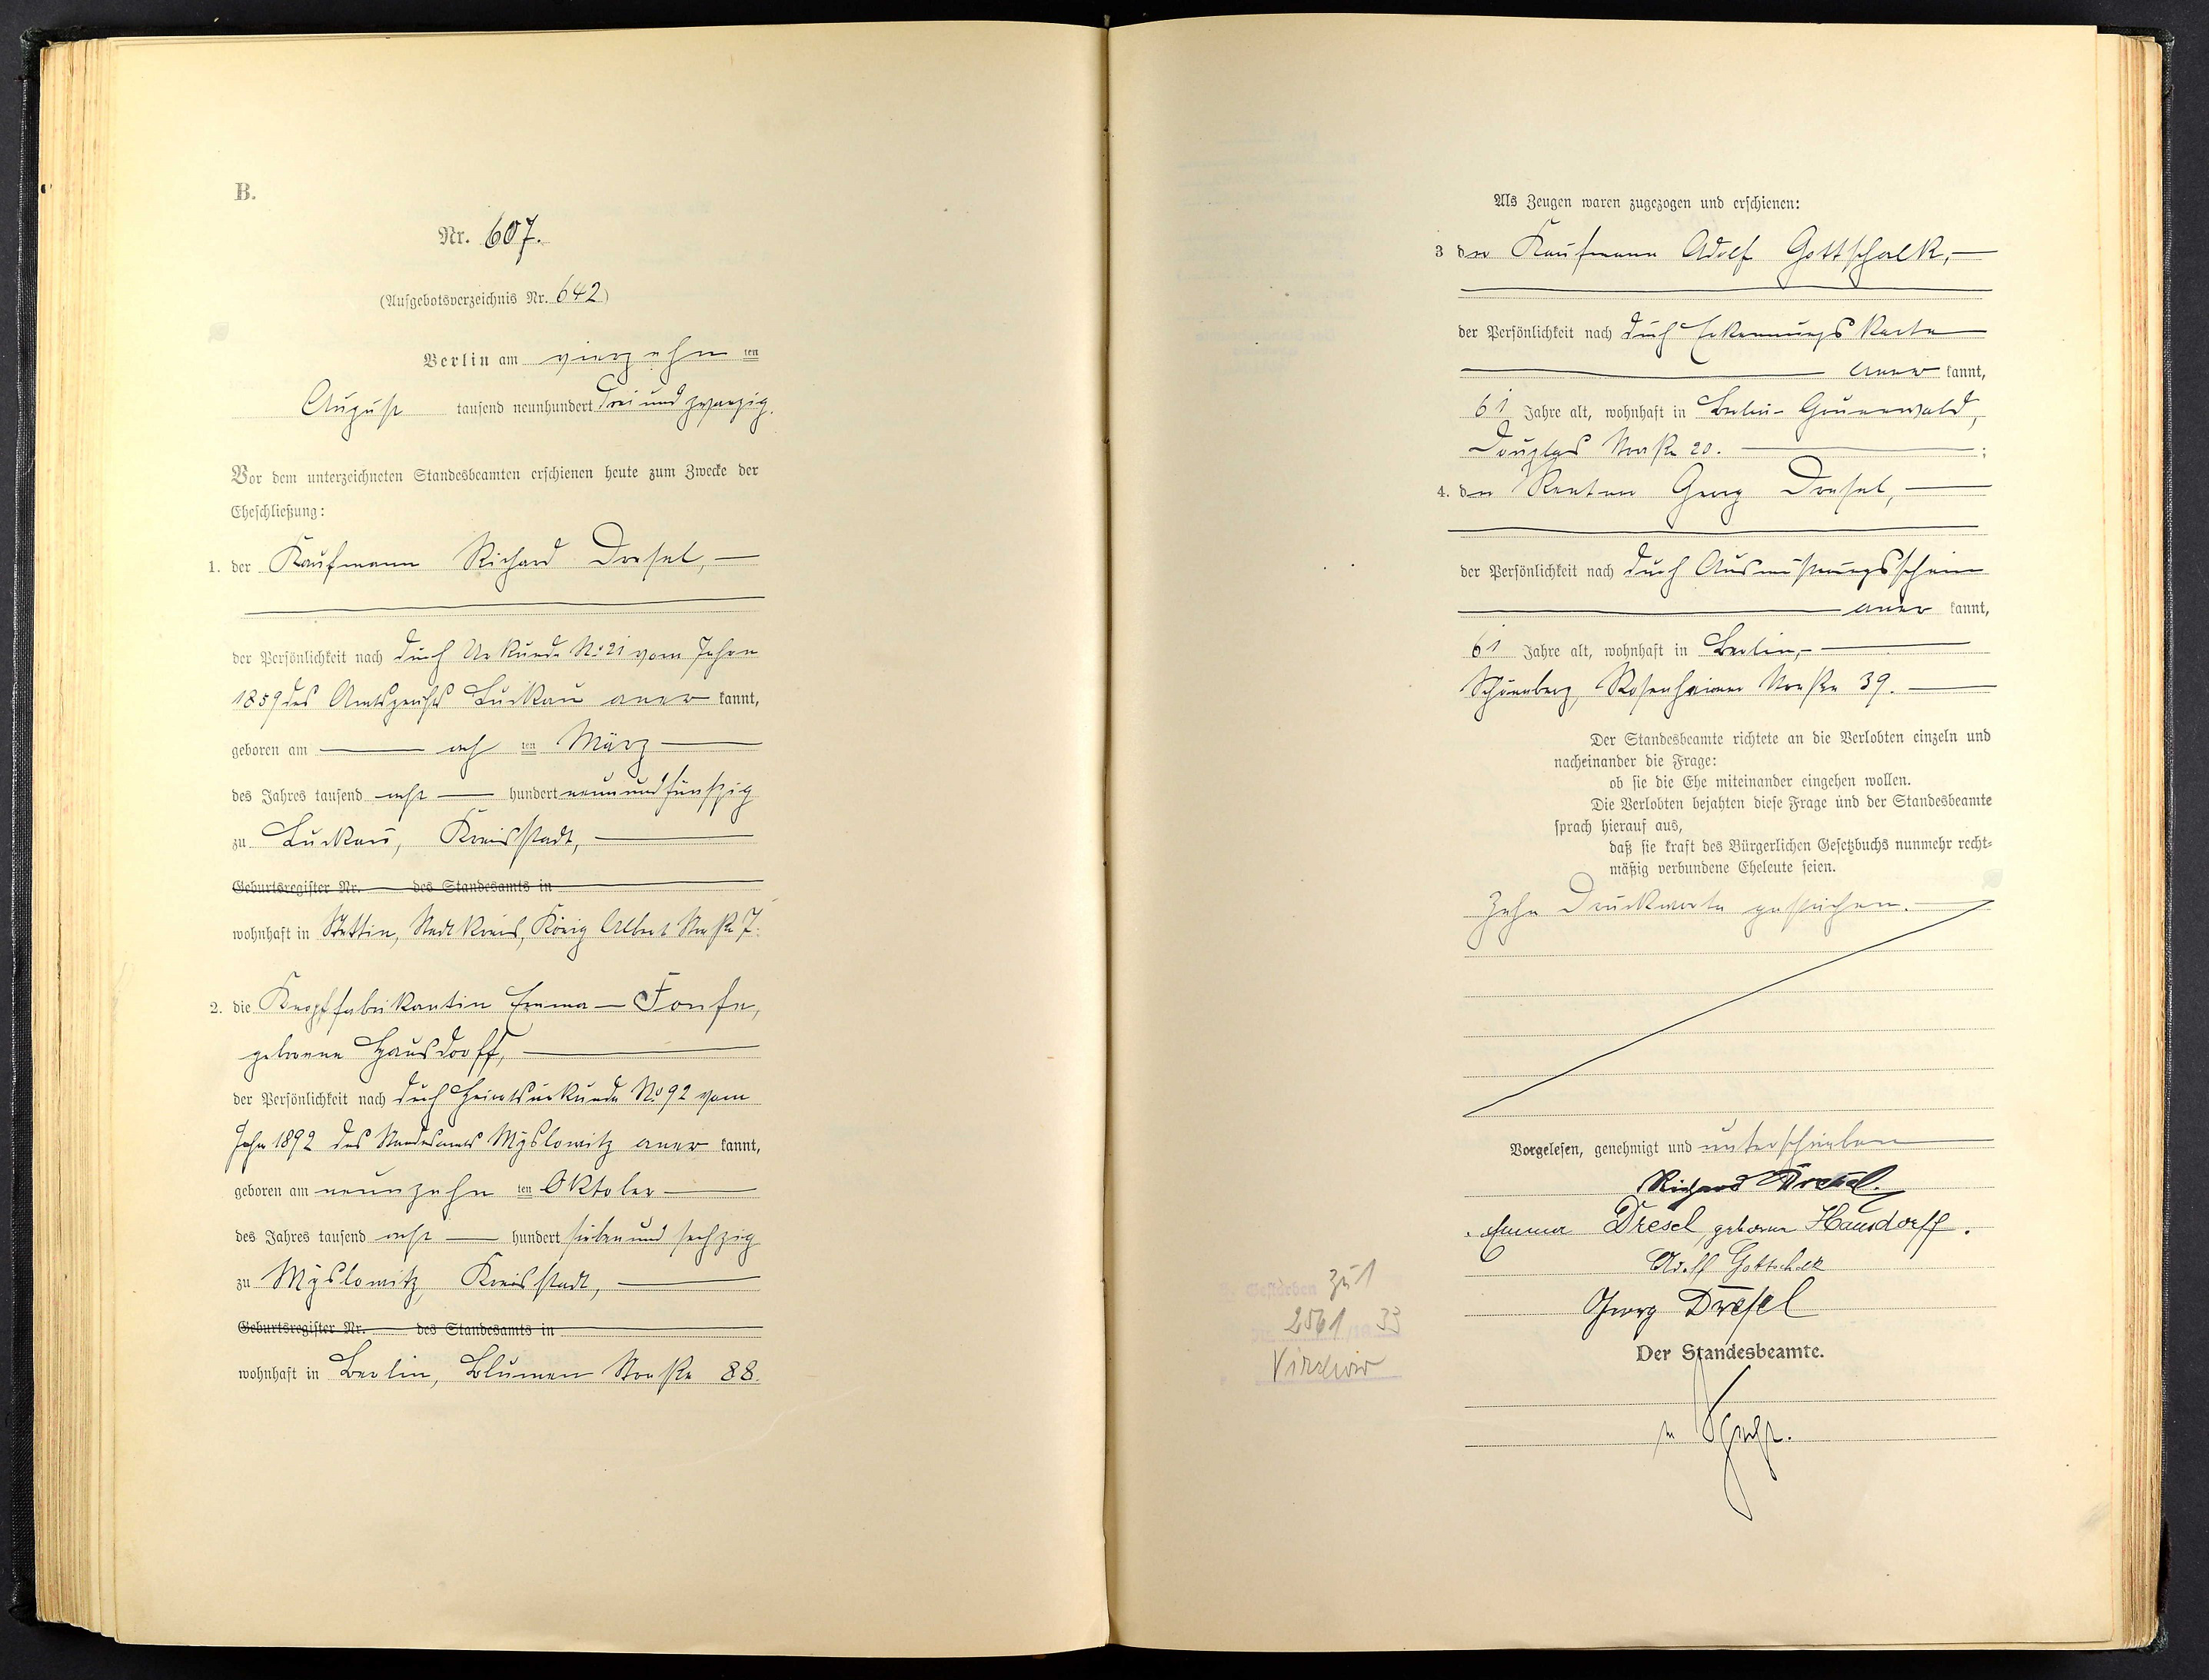 B.
Nr. 607.
(Aufgebotsverzeichnis Nr. 642)
Berlin am vierzehn ten
August tausend neunhundert drei und zwanzig.
Vor dem unterzeichneten Standesbeamten erschienen heute zum Zwecke der
Eheschließung:
1. der Kaufmann Richard Dresel,
der Persönlichkeit nach durch Urkunde No 21 vom Jahre
1859 des Amtsgerichts Luckau aner kannt,
geboren am acht ten März
des Jahres tausend acht hundert neunundfünfzig
zu Luckau, Kreisstadt,
Geburtsregister Nr. des Standesamts in
wohnhaft in Stettin, Stadtkreis, König Albert Straße 7.
2. die Knopffabrikantin Emma
geborene Hausdorff,
der Persönlichkeit nach durch Heiratsurkunde No 92 vom
Jahre 1892 des Standesamts Myslowitz aner kannt,
geboren am neunzehn ten Oktober
des Jahres tausend acht hundert sieben und sechzig
zu Myslowitz, Kreisstadt,
Geburtsregister Nr. des Standesamts in
wohnhaft in Berlin, Blumen Straße 88.
Als Zeugen waren zugezogen und erschienen:
3 der Kaufmann Adolf Gottschalk,
der Persönlichkeit nach durch Erkennungskarte
aner kannt,
61 Jahre alt, wohnhaft in Berlin-Grunewald,
Douglas Straße 20. ;
4. der Rentner Georg Dresel,
der Persönlichkeit nach durch Ausmusterungsschein
aner kannt,
61 Jahre alt, wohnhaft in Berlin,-
Schöneberg, Rosenheimer Straße 39.
Der Standesbeamte richtete an die Verlobten einzeln und
nacheinander die Frage:
ob sie die Ehe miteinander eingehen wollen.
Die Verlobten bejahten diese Frage und der Standesbeamte
sprach hierauf aus,
daß sie kraft des Bürgerlichen Gesetzbuchs nunmehr recht-
mäßig verbundene Eheleute seien.
Zehn Druckworte gestrichen.
Vorgelesen, genehmigt und unterschrieben
Richard Dresel.
Emma Dresel, geborene Hausdorff.
Adolf Gottschalk
Georg Dresel
Der Standesbeamte.
Gestorben zu 1
Nr. 2561 33
Virchow